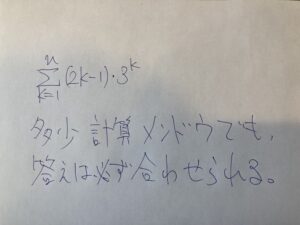 n
∑(2k-1)・3^k
k=1
多少計算メンドウでも、
答えは必ず合わせられる。